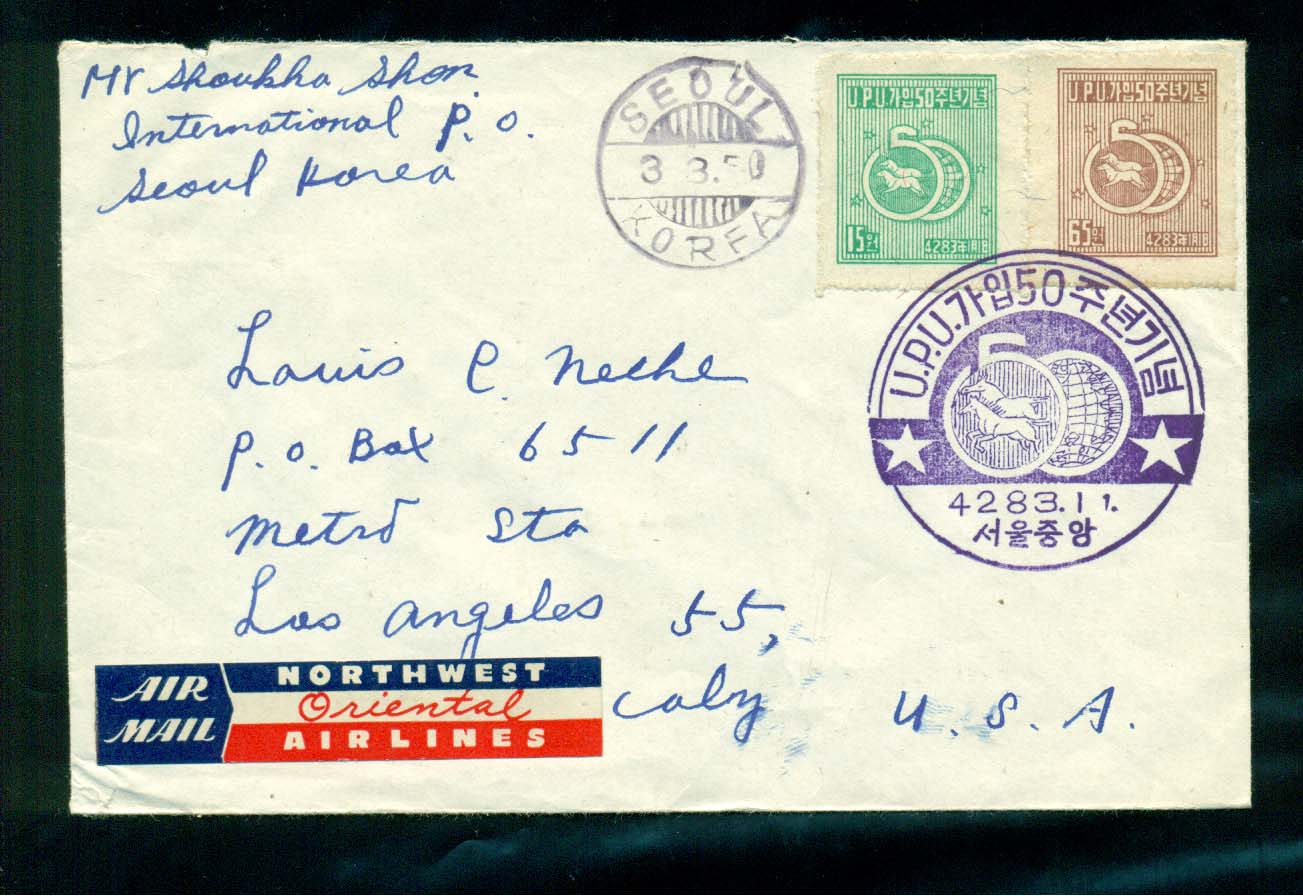 Mr Shoukha Shon
International P. O.
Seoul Korea
SEOUL
3.3.50
KOREA
U.P.U.가입50주년기념
15원
4283年1月1日
U.P.U.가입50주년기념
65원
4283年1月1日
U.P.U.가입50주년기념
4283.1 1.
서울중앙
Louis C Neche
P. O. Box 6511
Metro Sta
Los Angeles 55,
Calif U. S. A.
AIR MAIL
NORTHWEST
Oriental
AIRLINES